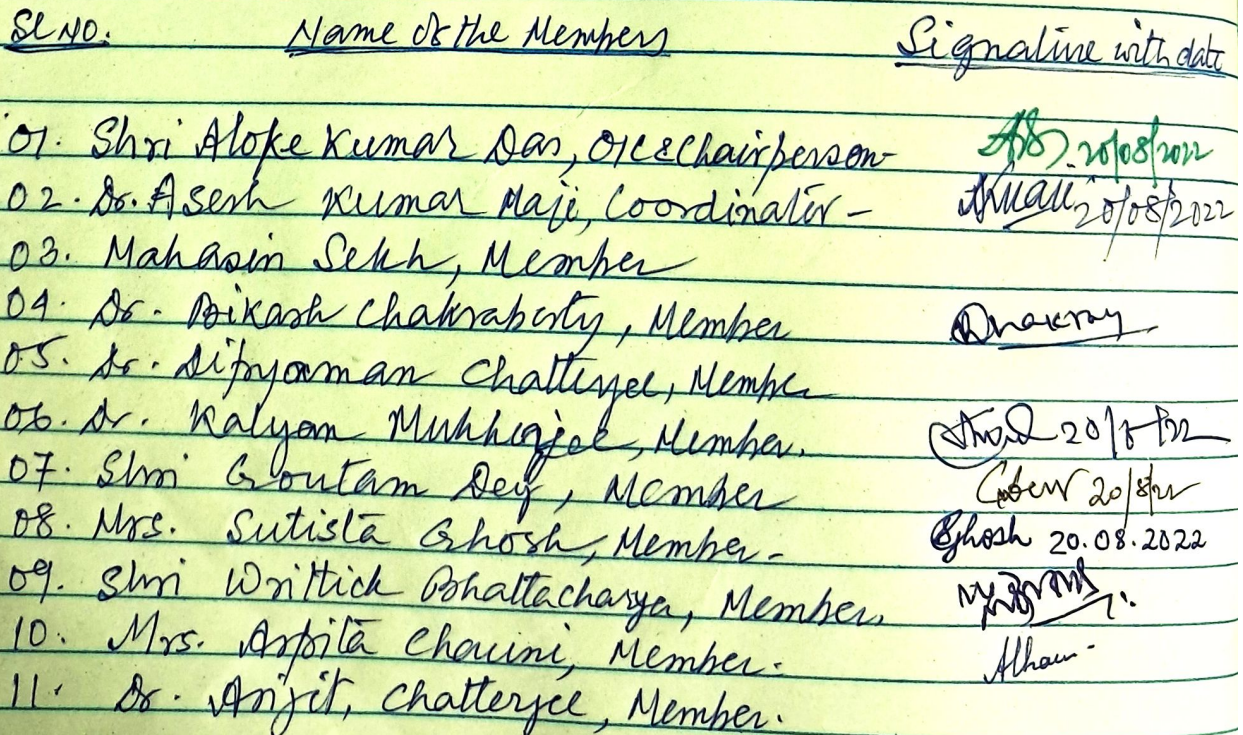 Sl NO. Name of the Members Signature with date
01. Shri Aloke Kumar Das, OIC & Chairperson - 20/08/2022
02. Dr. Asesh Kumar Maji, Coordinator - 20/08/2022
03. Mahasin Sekh, Member
04. Dr. Bikash Chakraborty, Member
05. Dr. Dipyaman Chatterjee, Member
06. Dr. Kalyan Mukherjee, Member. 20/8/22
07. Shri Goutam Dey, Member 20/8/22
08. Mrs. Sutista Ghosh, Member - SGhosh 20.08.2022
09. Shri Writtick Bhattacharya, Member.
10. Mrs. Arpita Member.
11. Dr. Arijit, Chatterjee, Member.